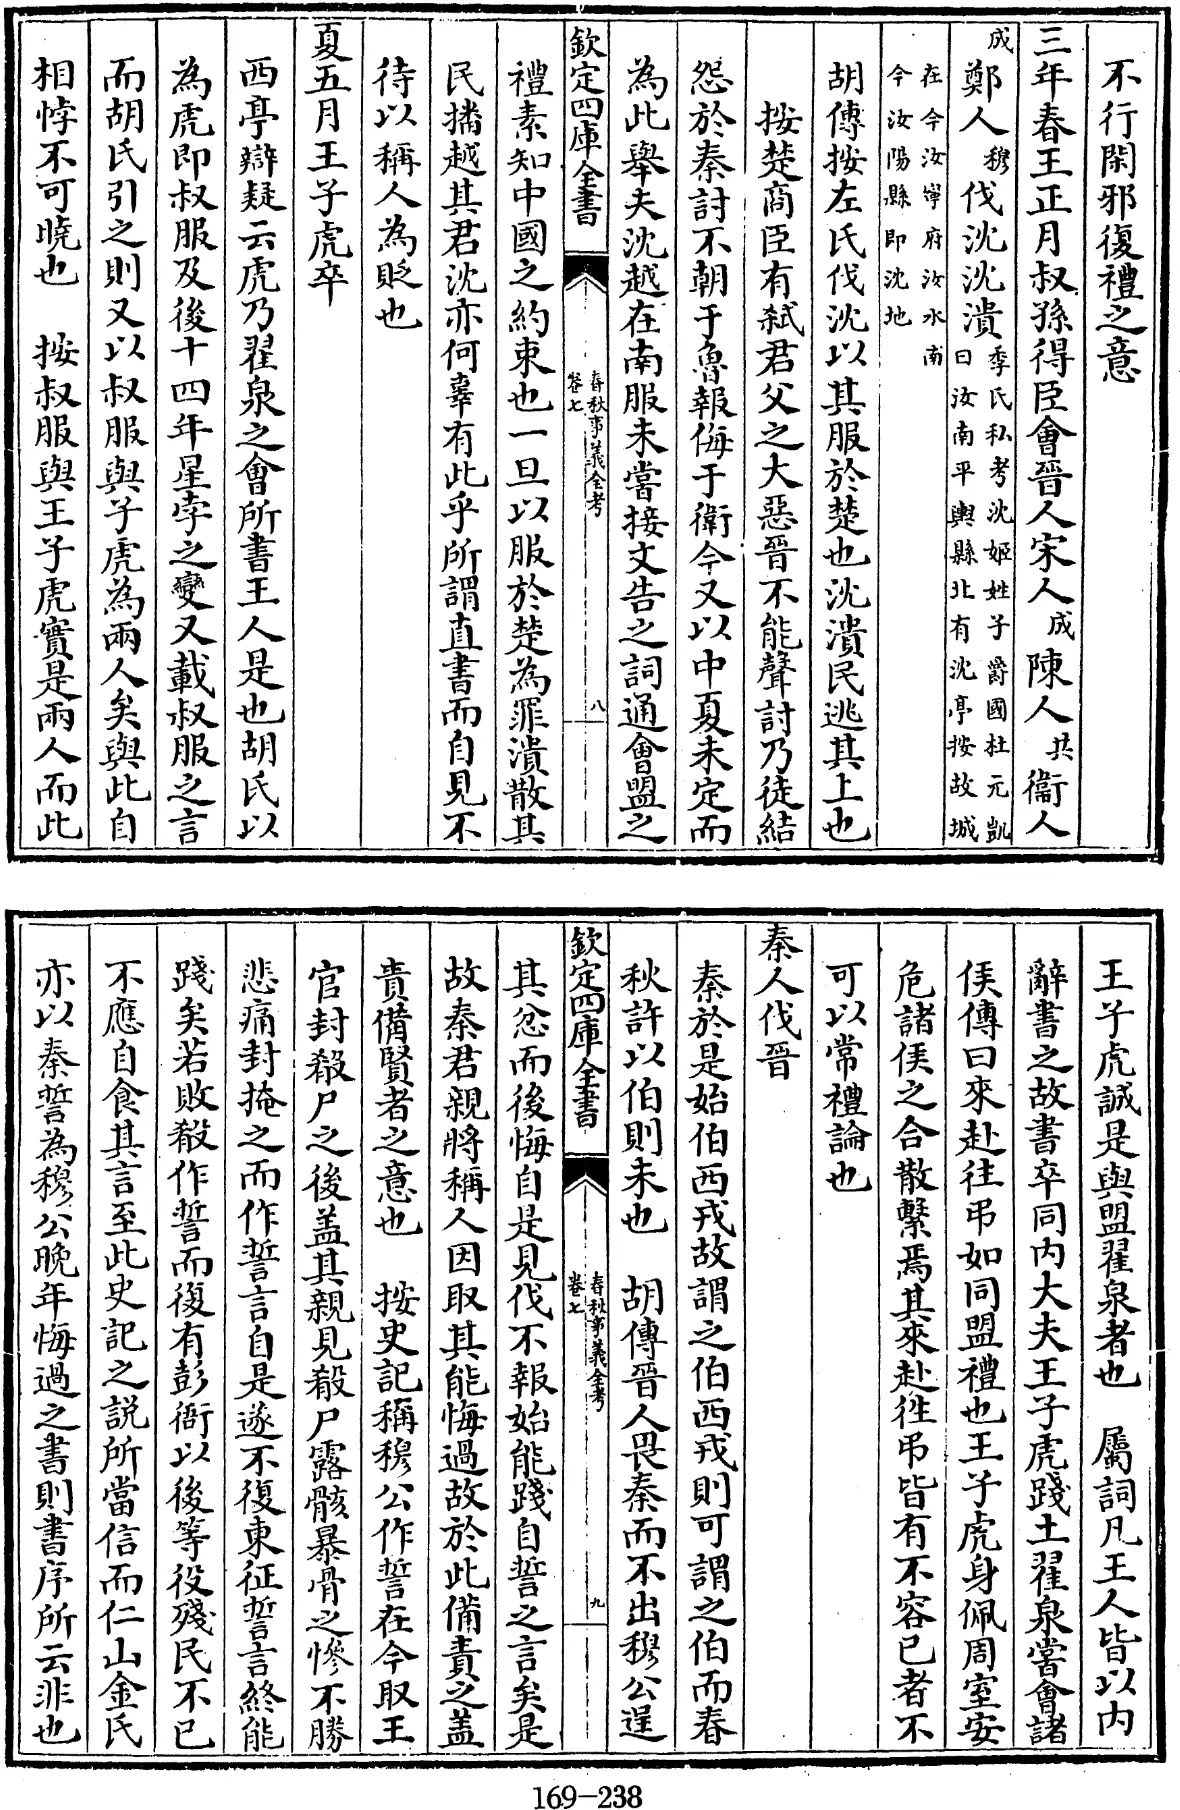 不行閑邪復禮之意
三年春王正月叔孫得臣會晉人宋人成陳人共衞人
成鄭人穆伐沈沈潰季氏私考沈姬姓子爵國杜元凱
曰汝南平輿縣北有沈亭按故城
在今汝寧府汝水南
今汝陽縣即沈地
胡傳按左氏伐沈以其服於楚也沈潰民逃其上也
按楚商臣有弑君父之大惡晉不能聲討乃徒結
怨於秦討不朝于魯報侮于衛今又以中夏未定而
為此舉夫沈越在南服未嘗接文告之詞通會盟之
欽定四庫全書
春秋事義全考
卷七
八
禮素知中國之約束也一旦以服於楚為罪潰散其
民播越其君沈亦何辜有此乎所謂直書而自見不
待以稱人為貶也
夏五月王子虎卒
西亭辯疑云虎乃翟泉之會所書王人是也胡氏以
為虎即叔服及後十四年星孛之變又載叔服之言
而胡氏引之則又以叔服與子虎為兩人矣與此自
相悖不可曉也　按叔服與王子虎實是兩人而此
王子虎誠是與盟翟泉者也　屬詞凡王人皆以內
辭書之故書卒同內大夫王子虎踐土翟泉嘗會諸
侯傳曰來赴往弔如同盟禮也王子虎身佩周室安
危諸侯之合散繫焉其來赴徃弔皆有不容已者不
可以常禮論也
秦人伐晉
秦於是始伯西戎故謂之伯西戎則可謂之伯而春
秋許以伯則未也　胡傳晉人畏秦而不出穆公逞
欽定四庫全書
春秋事義全考
卷七
九
其忿而後悔自是見伐不報始能踐自誓之言矣是
故秦君親將稱人因取其能悔過故於此備責之盖
責備賢者之意也　按史記稱穆公作誓在今取王
官封殽尸之後盖其親見殽尸露骸暴骨之慘不勝
悲痛封掩之而作誓言自是遂不復東征誓言終能
踐矣若敗殽作誓而復有彭衙以後等役殘民不已
不應自食其言至此史記之説所當信而仁山金氏
亦以秦誓為穆公晩年悔過之書則書序所云非也
169-238